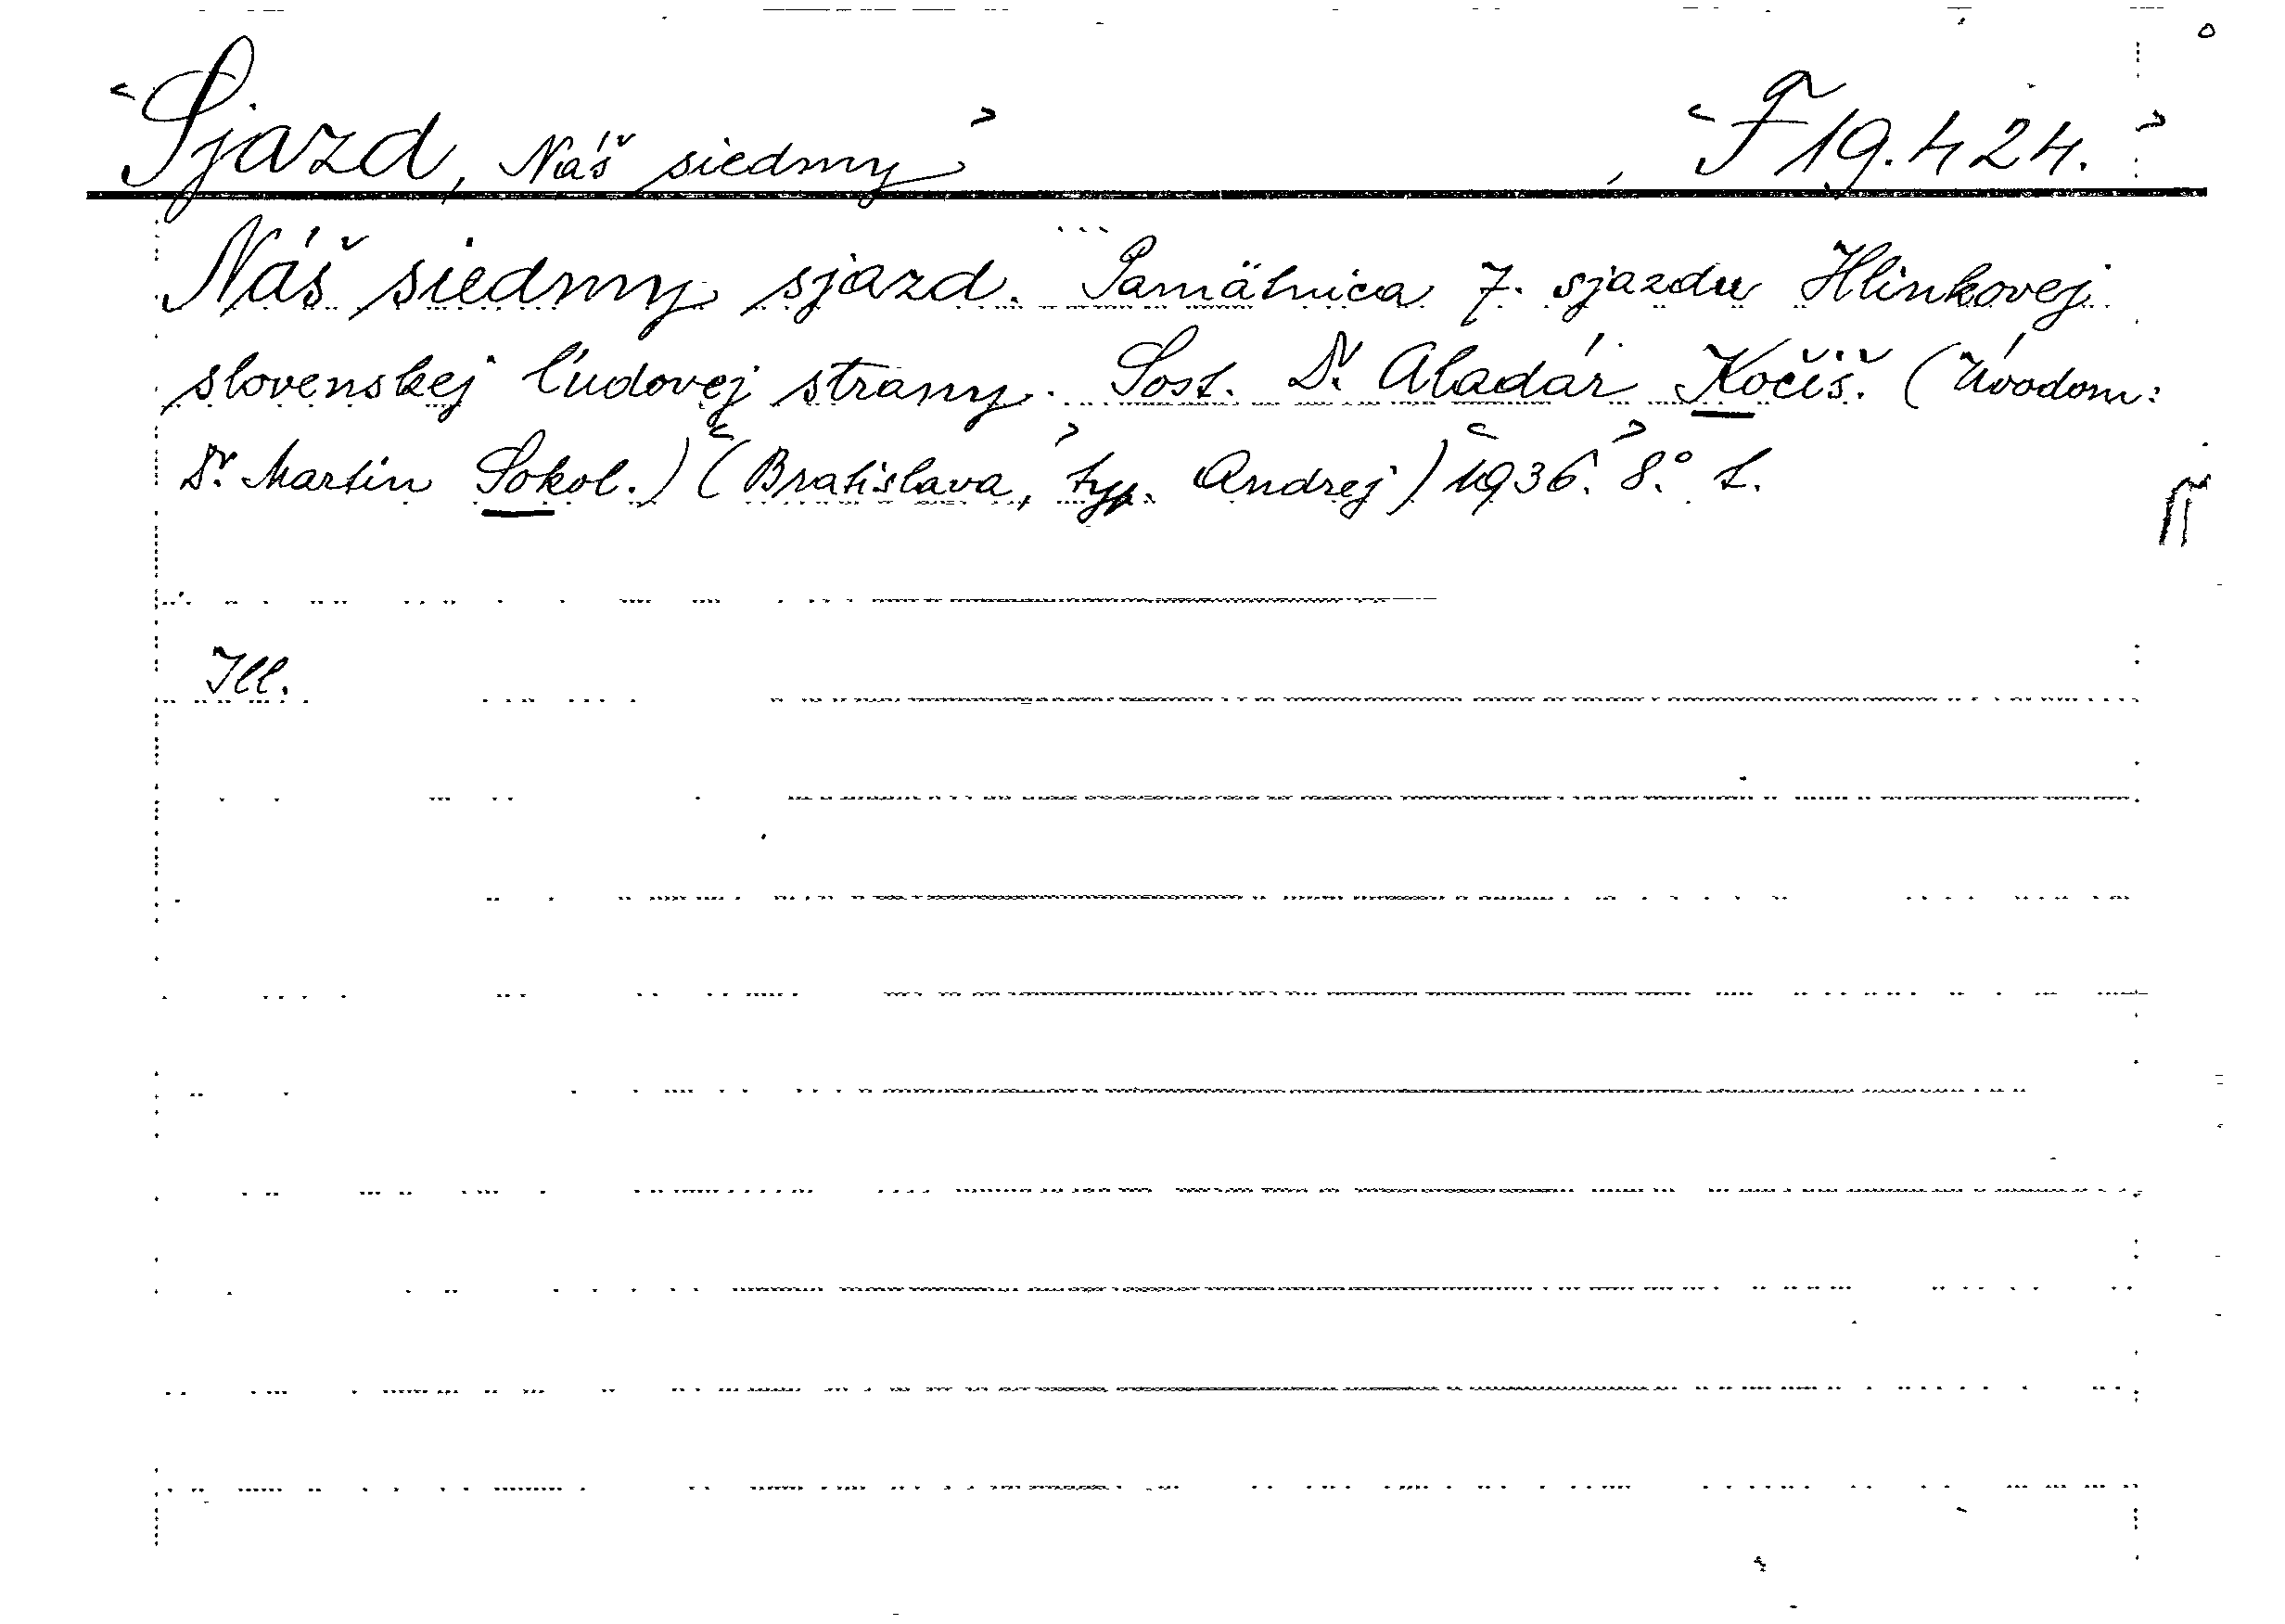 Sjazd, Náš siedmy F 19.424.
Náš siedmy sjazd. Pamätnica 7. sjazdu Hlinkovej
slovenskej ľudovej strany. Sost. Dr. Aladár Kočiš. (Úvodom:
Dr. Martin Sokol.) (Bratislava, typ. Andrej) 1936. 8.° L.
Ill.